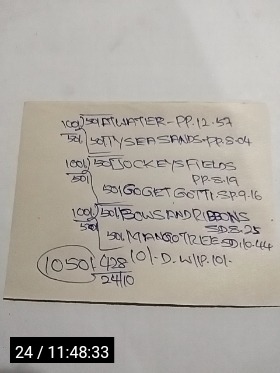 100/ 50/ ATWATER-PP.12.57
50/ 50/ TYSEASANDS-PP.8.04
100/ 50/ JOCKEYSFIELDS
50/ PP.8.19
50/ GOGETGOTTI.SP.9.16
100/ 50/ BOWSANDRIBBONS
50/ SD.8.25
50/ MANGOTREE SD.10.44
1050/- 428 10/-D.W/P.10/-
24/10
24 / 11:48:33